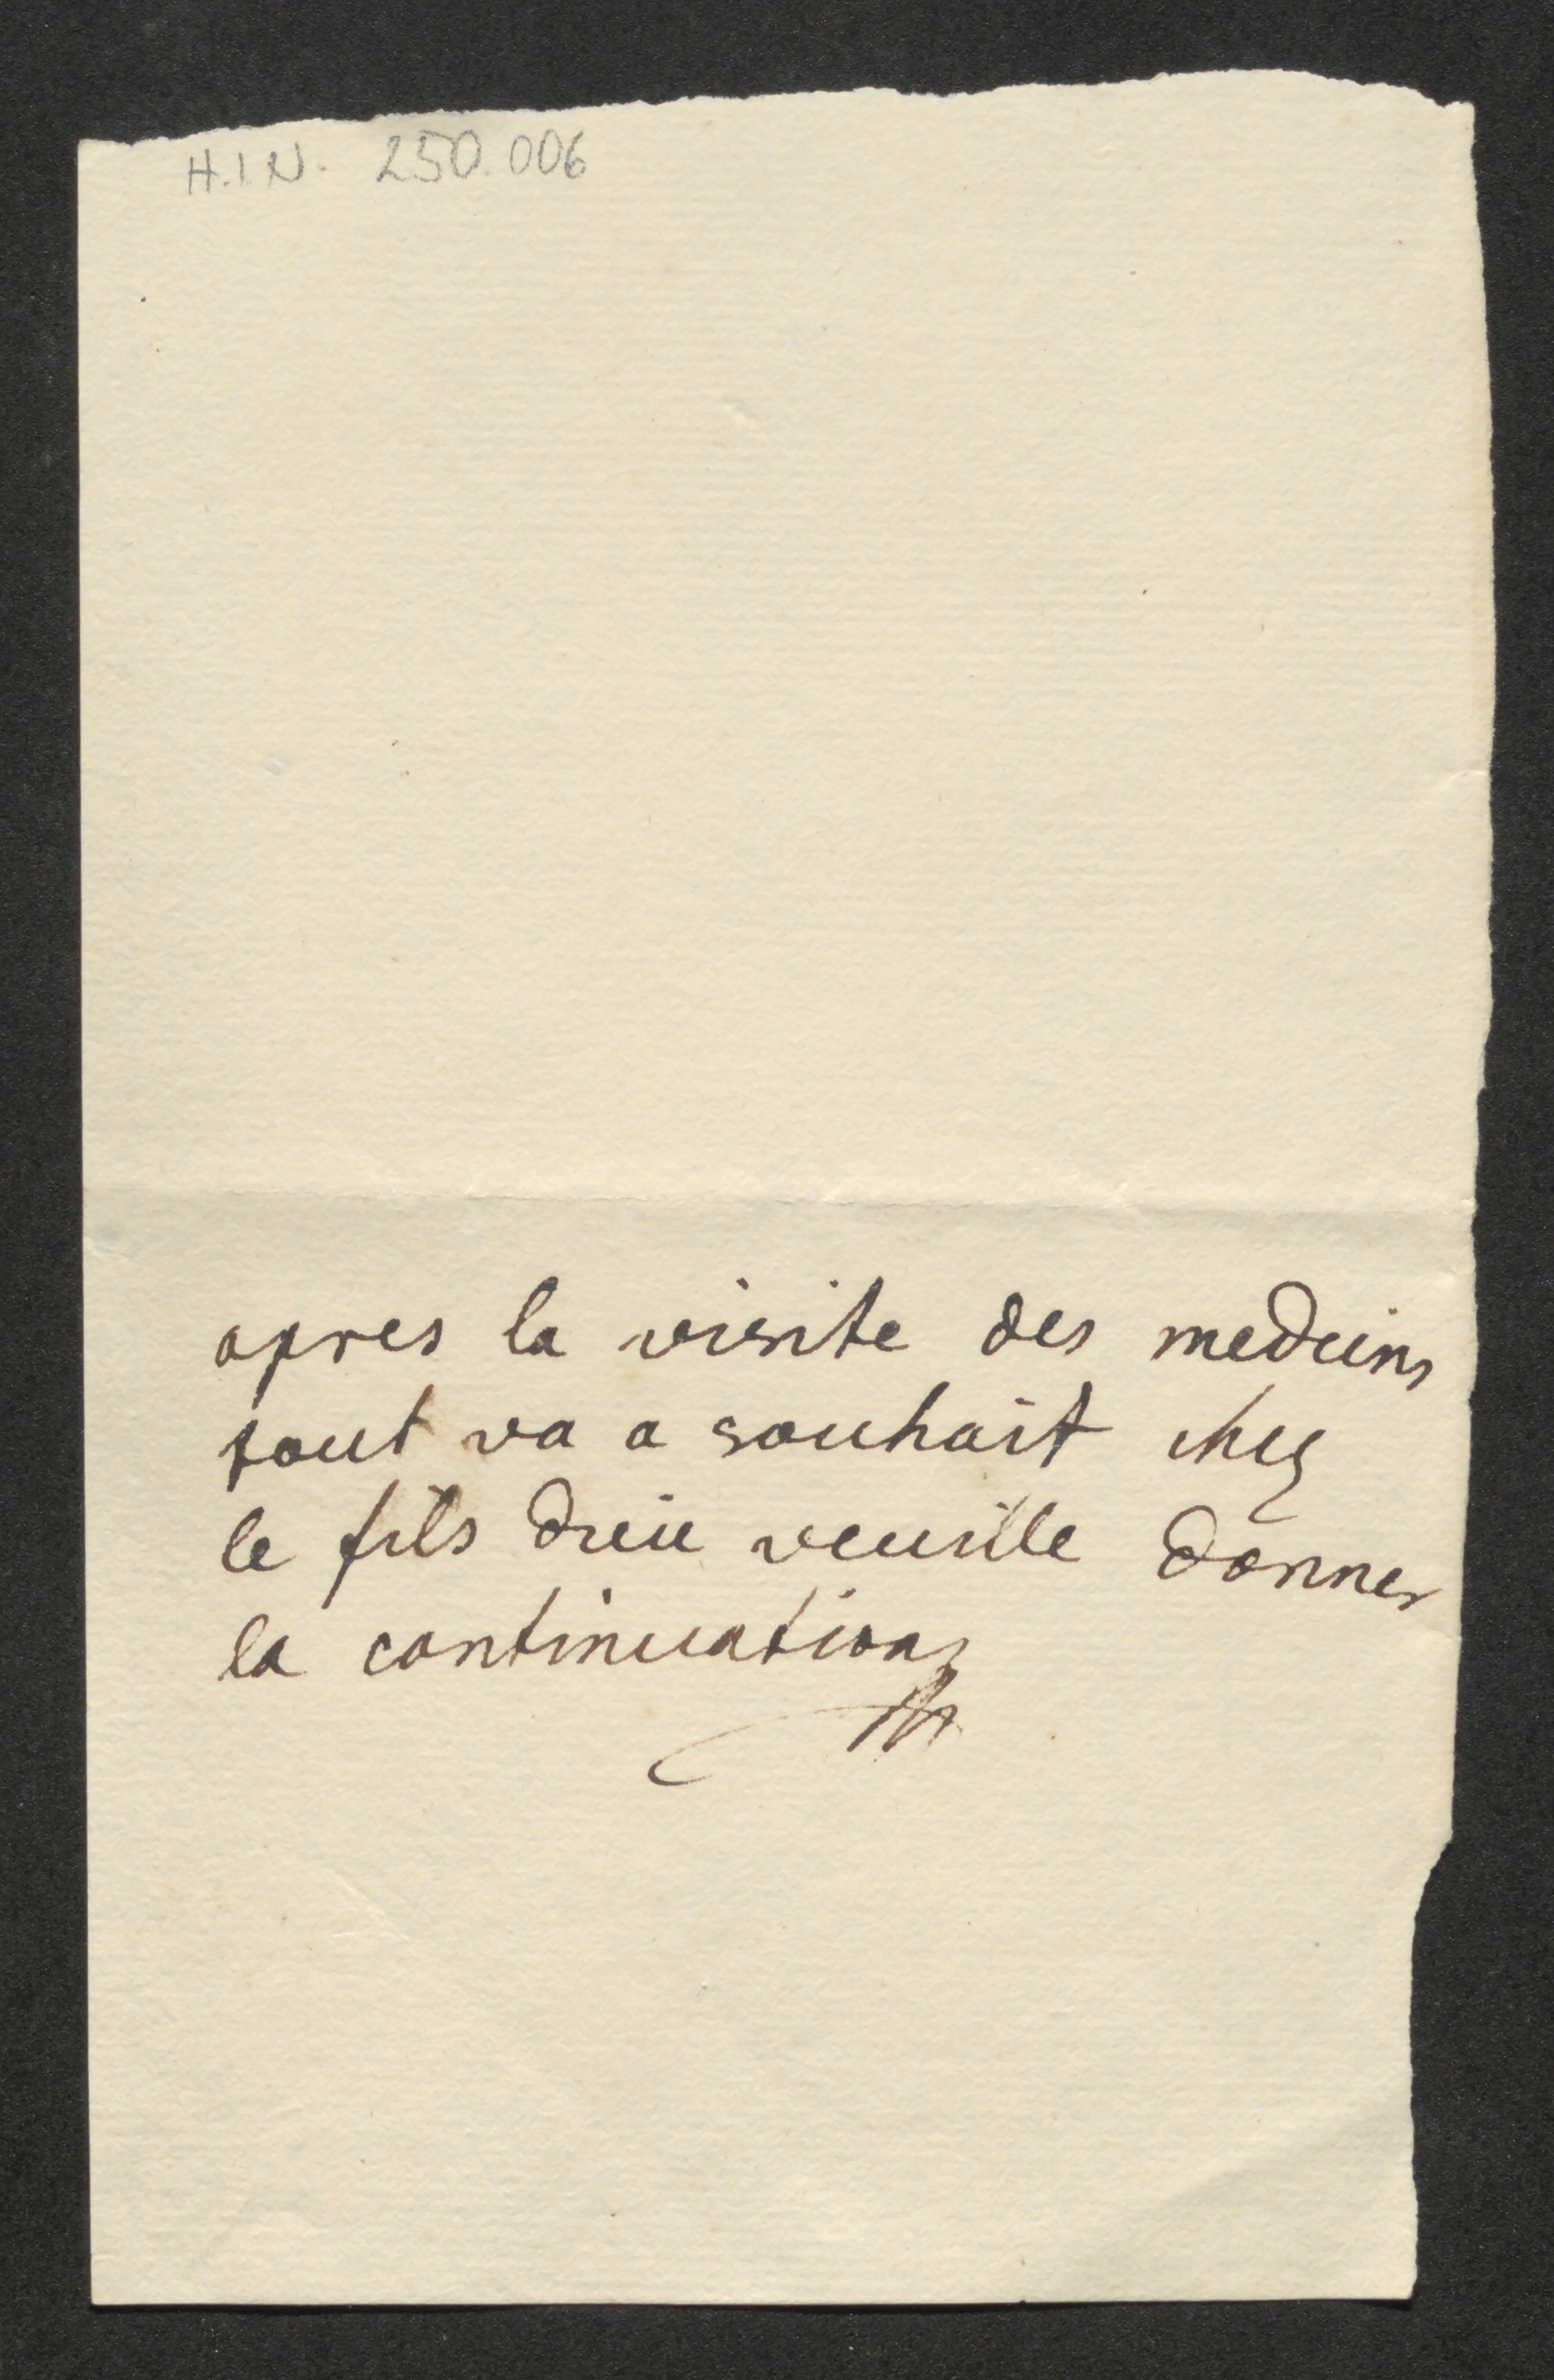 H.I.N. 250.006
apres la visite des medecins
tout va a souhait chez
le fils dieu veuille donner
la continuation